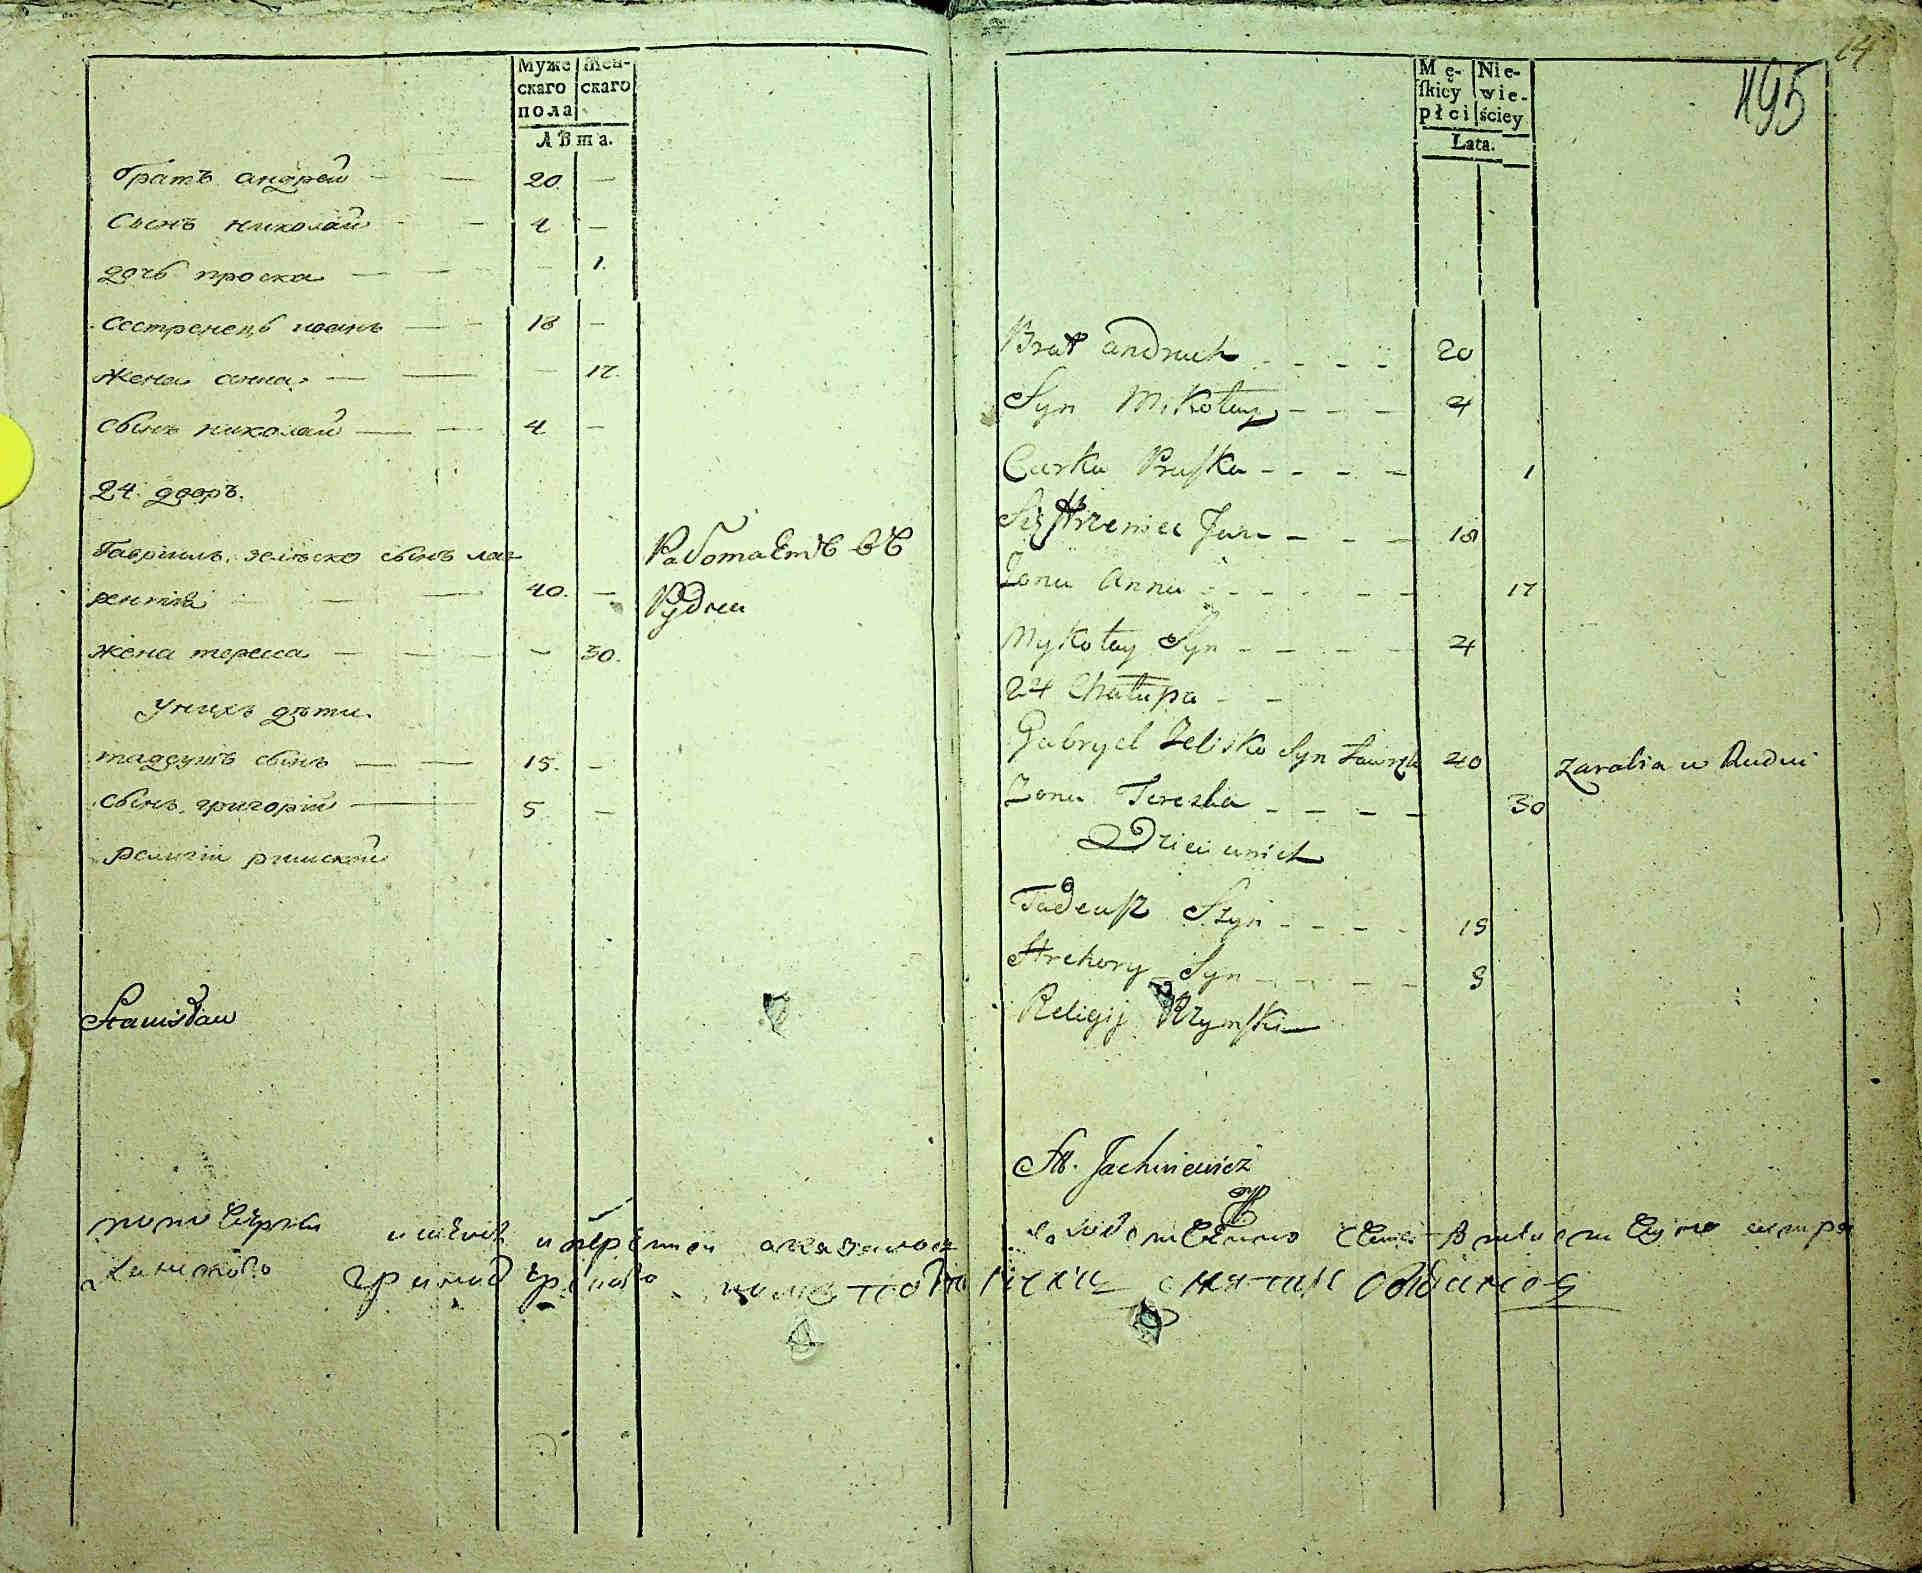 Муже
скаго
пола
Жен-
скаго
Лѣта.
братъ андрей — — 20. —
Сынъ николай — — 4 —
дочь проска — — — 1.
сестренецъ иоанъ — — 18 —
жена анна — — — 17.
сынъ николай — — 4 —
24. дворъ.
Гавриилъ зелиско сынъ лав
рентія — — — 40. —
Работаетъ въ
Рудни
жена тереса — — — — 30.
У нихъ дѣти.
тадеушъ сынъ — — 15. —
сынъ григорій — 5 —
религіи римской
Stanisław
14
195
Mę-
ſkiey
płci
Nie-
wie-
ściey
Lata.
Brat andruch - - - - 20
Syn Mikołay - - - 4
Curka Pruſka - - - - 1
Siostrzeniec Jan - - - 18
Zona Anna - - - - - - 17
Mykołay Syn - - - - 4
24 Chałupa - -
Gabryel Zelisko Syn Ławryn 40 Zarabia w Rudni
Zona Tereska - - - - 30
Dzieci unich
Tadeuſz Szyn - - - - 15
Hrehory Syn - - - - - 5
Religij Rzymſki
St. Jachniewicz